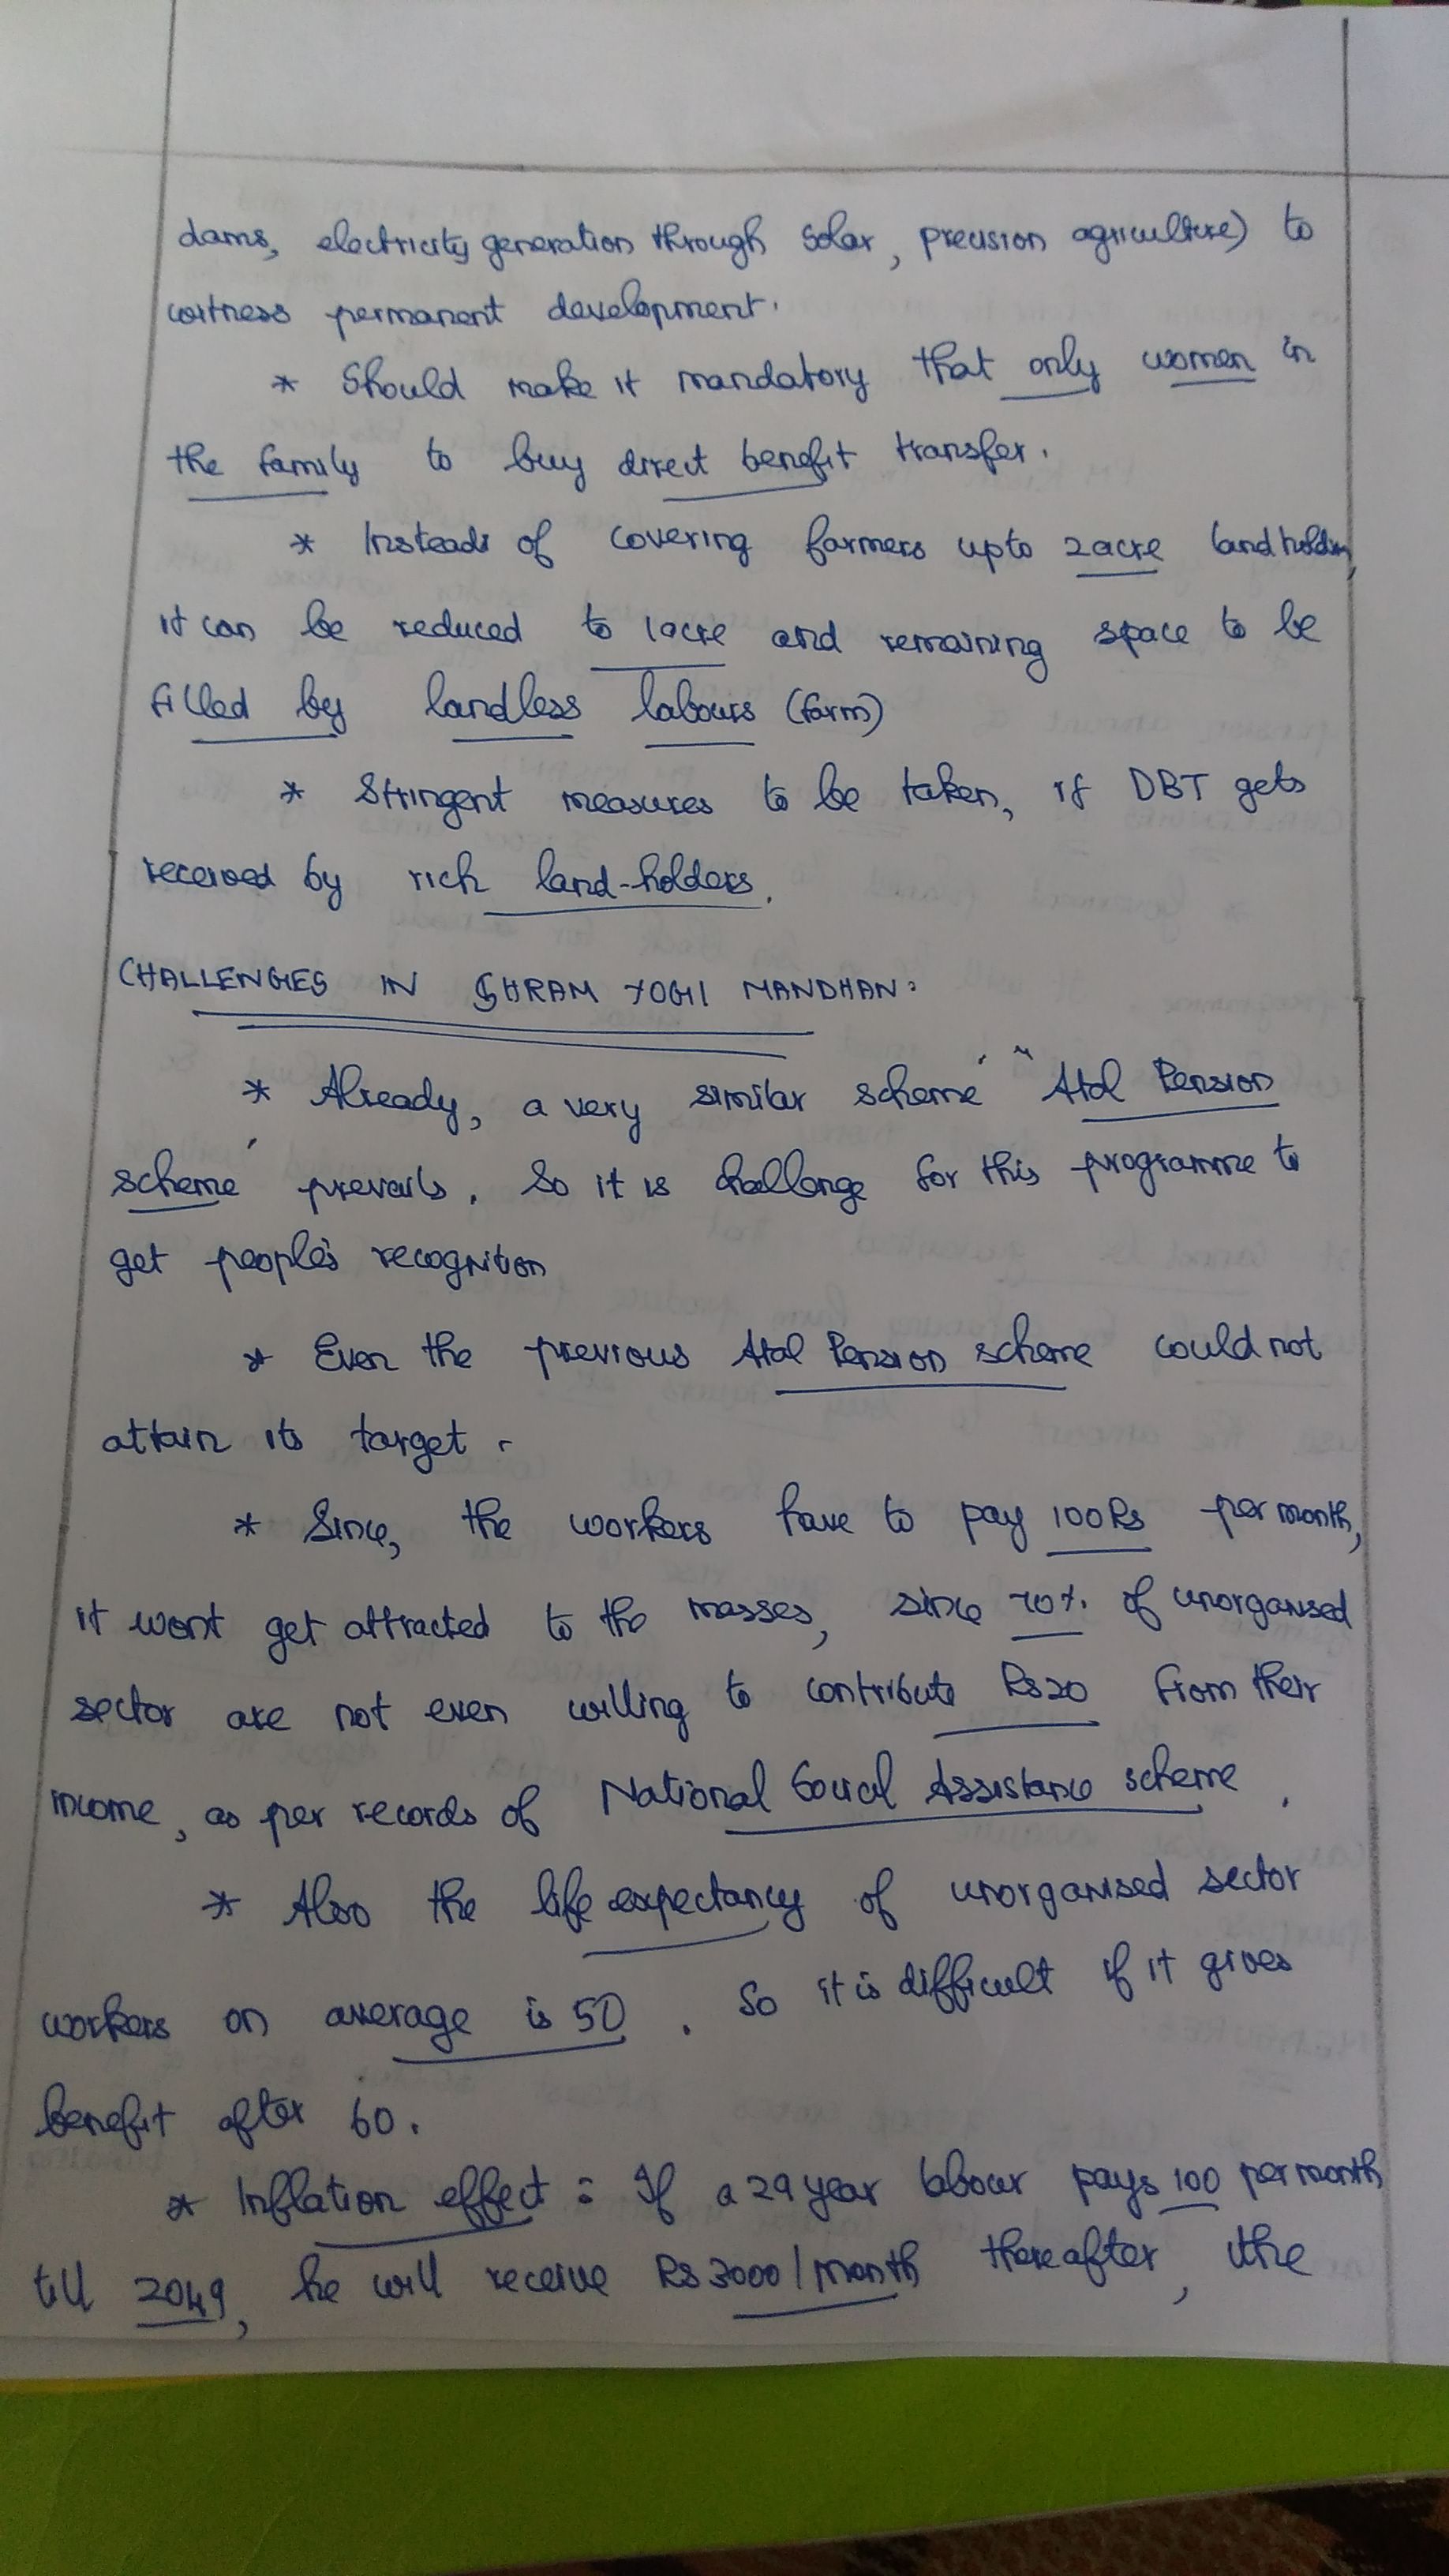 dams, electricity generation through solar, precision agriculture) to
witness permanent development.
* Should make it mandatory that only women in
the family to buy direct benefit transfer.
* Insteads of covering farmers upto 2acre landholdin,
it can be reduced to 1acre and remaining space to be
filled by landless labours (farm)
* Stringent measures to be taken, if DBT gets
received by rich land-holders.
CHALLENGES IN SHRAM YOGI MANDHAN:
* Already, a very similar scheme " Atal Pension
scheme' prevails. So it is challenge for this programme to
get people's recognition
* Even the previous Atal Pension scheme could not
attain its target.
* Since, the workers have to pay 100Rs per month,
it wont get attracted to the masses, since 70% of unorganised
sector are not even willing to contribute Rs20 from their
income, as per records of National Social Assistance scheme.
* Also the life expectancy of unorganised sector
workers on average is 50. So it is difficult if it gives
benefit after 60.
* Inflation effect: If a 29 year labour pays 100 per month
till 2049, he will receive Rs 3000/month thereafter, the